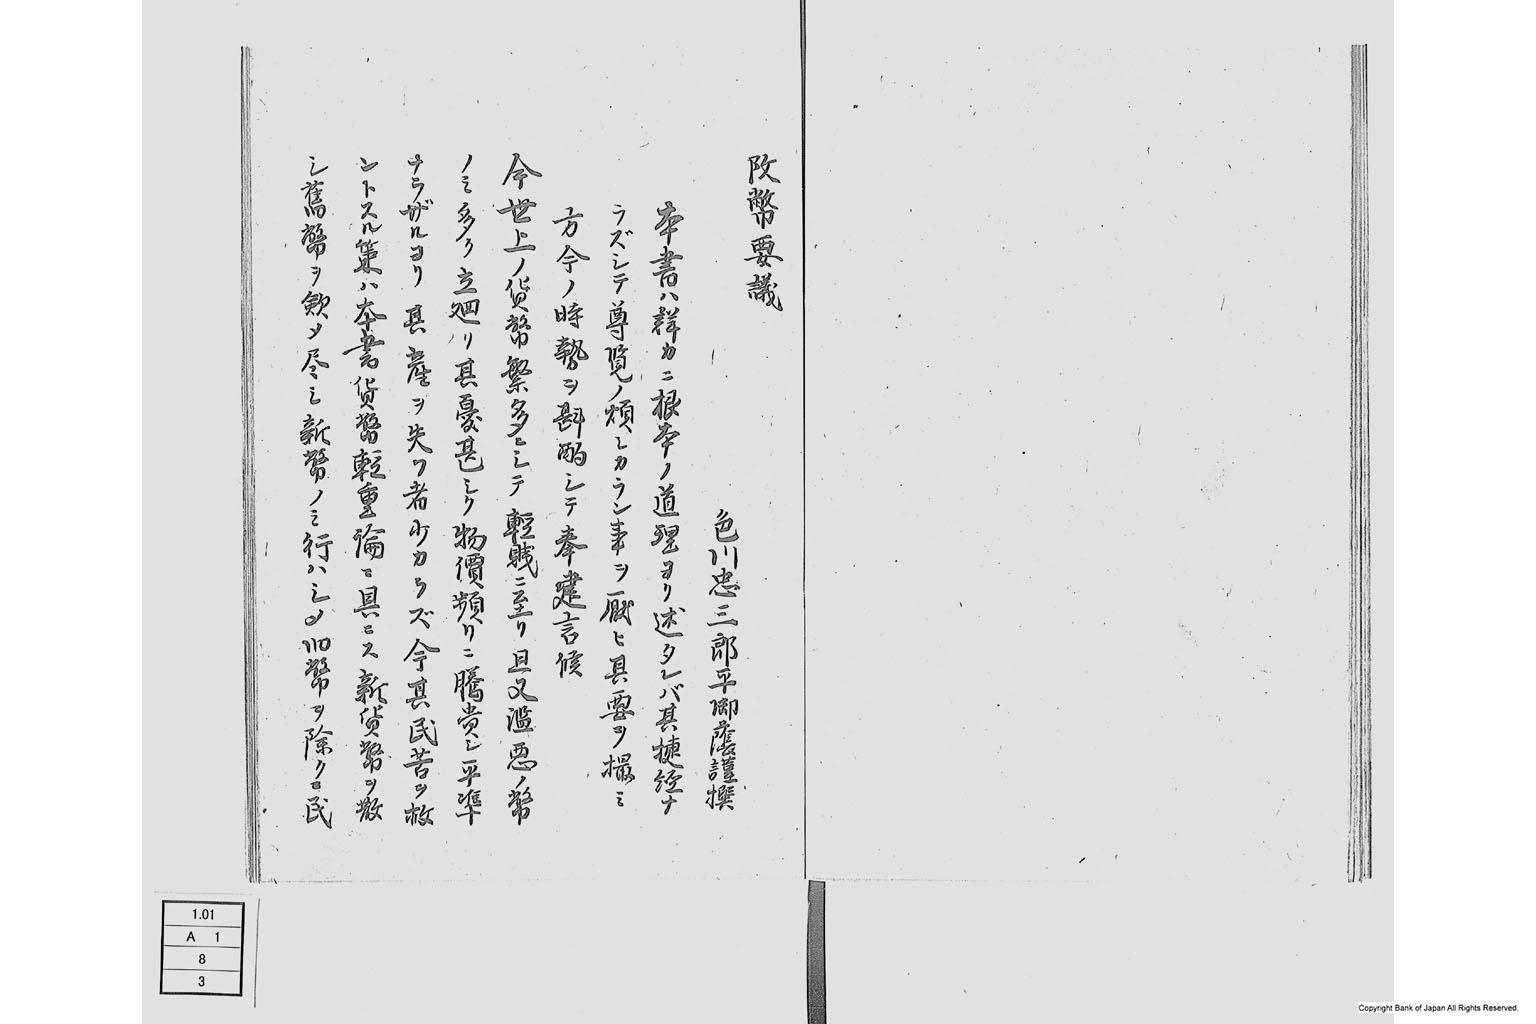 改幣要議
色川忠三郎平御蔭謹撰
本書ハ詳カニ根本ノ道理ヨリ述タレバ其捷径ナ
ラズシテ尊覧ノ煩シカラン事ヲ厭ヒ其要ヲ撮ミ
方今ノ時勢ヲ斟酌シテ奉建言候
今世上ノ貨幣繁多ニシテ軽賤ニ至リ且又濫悪ノ幣
ノミ多ク立廻リ其憂甚シク物價頻リニ騰貴シ平準
ナラザルヨリ其産ヲ失フ者少カラズ今其民苦ヲ救
ントスル策ハ本書貨幣軽重論ニ具ニス新貨幣ヲ散
シ舊幣ヲ歛メ尽シ新幣ノミ行ハシメ旧幣ヲ除クモ民
1.01
A 1
8
3
Copyright Bank of Japan All Rights Reserved.